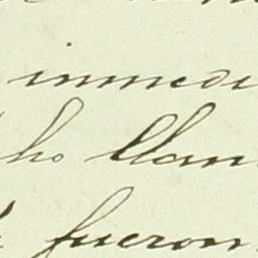 inmedi
ho llam
fueron